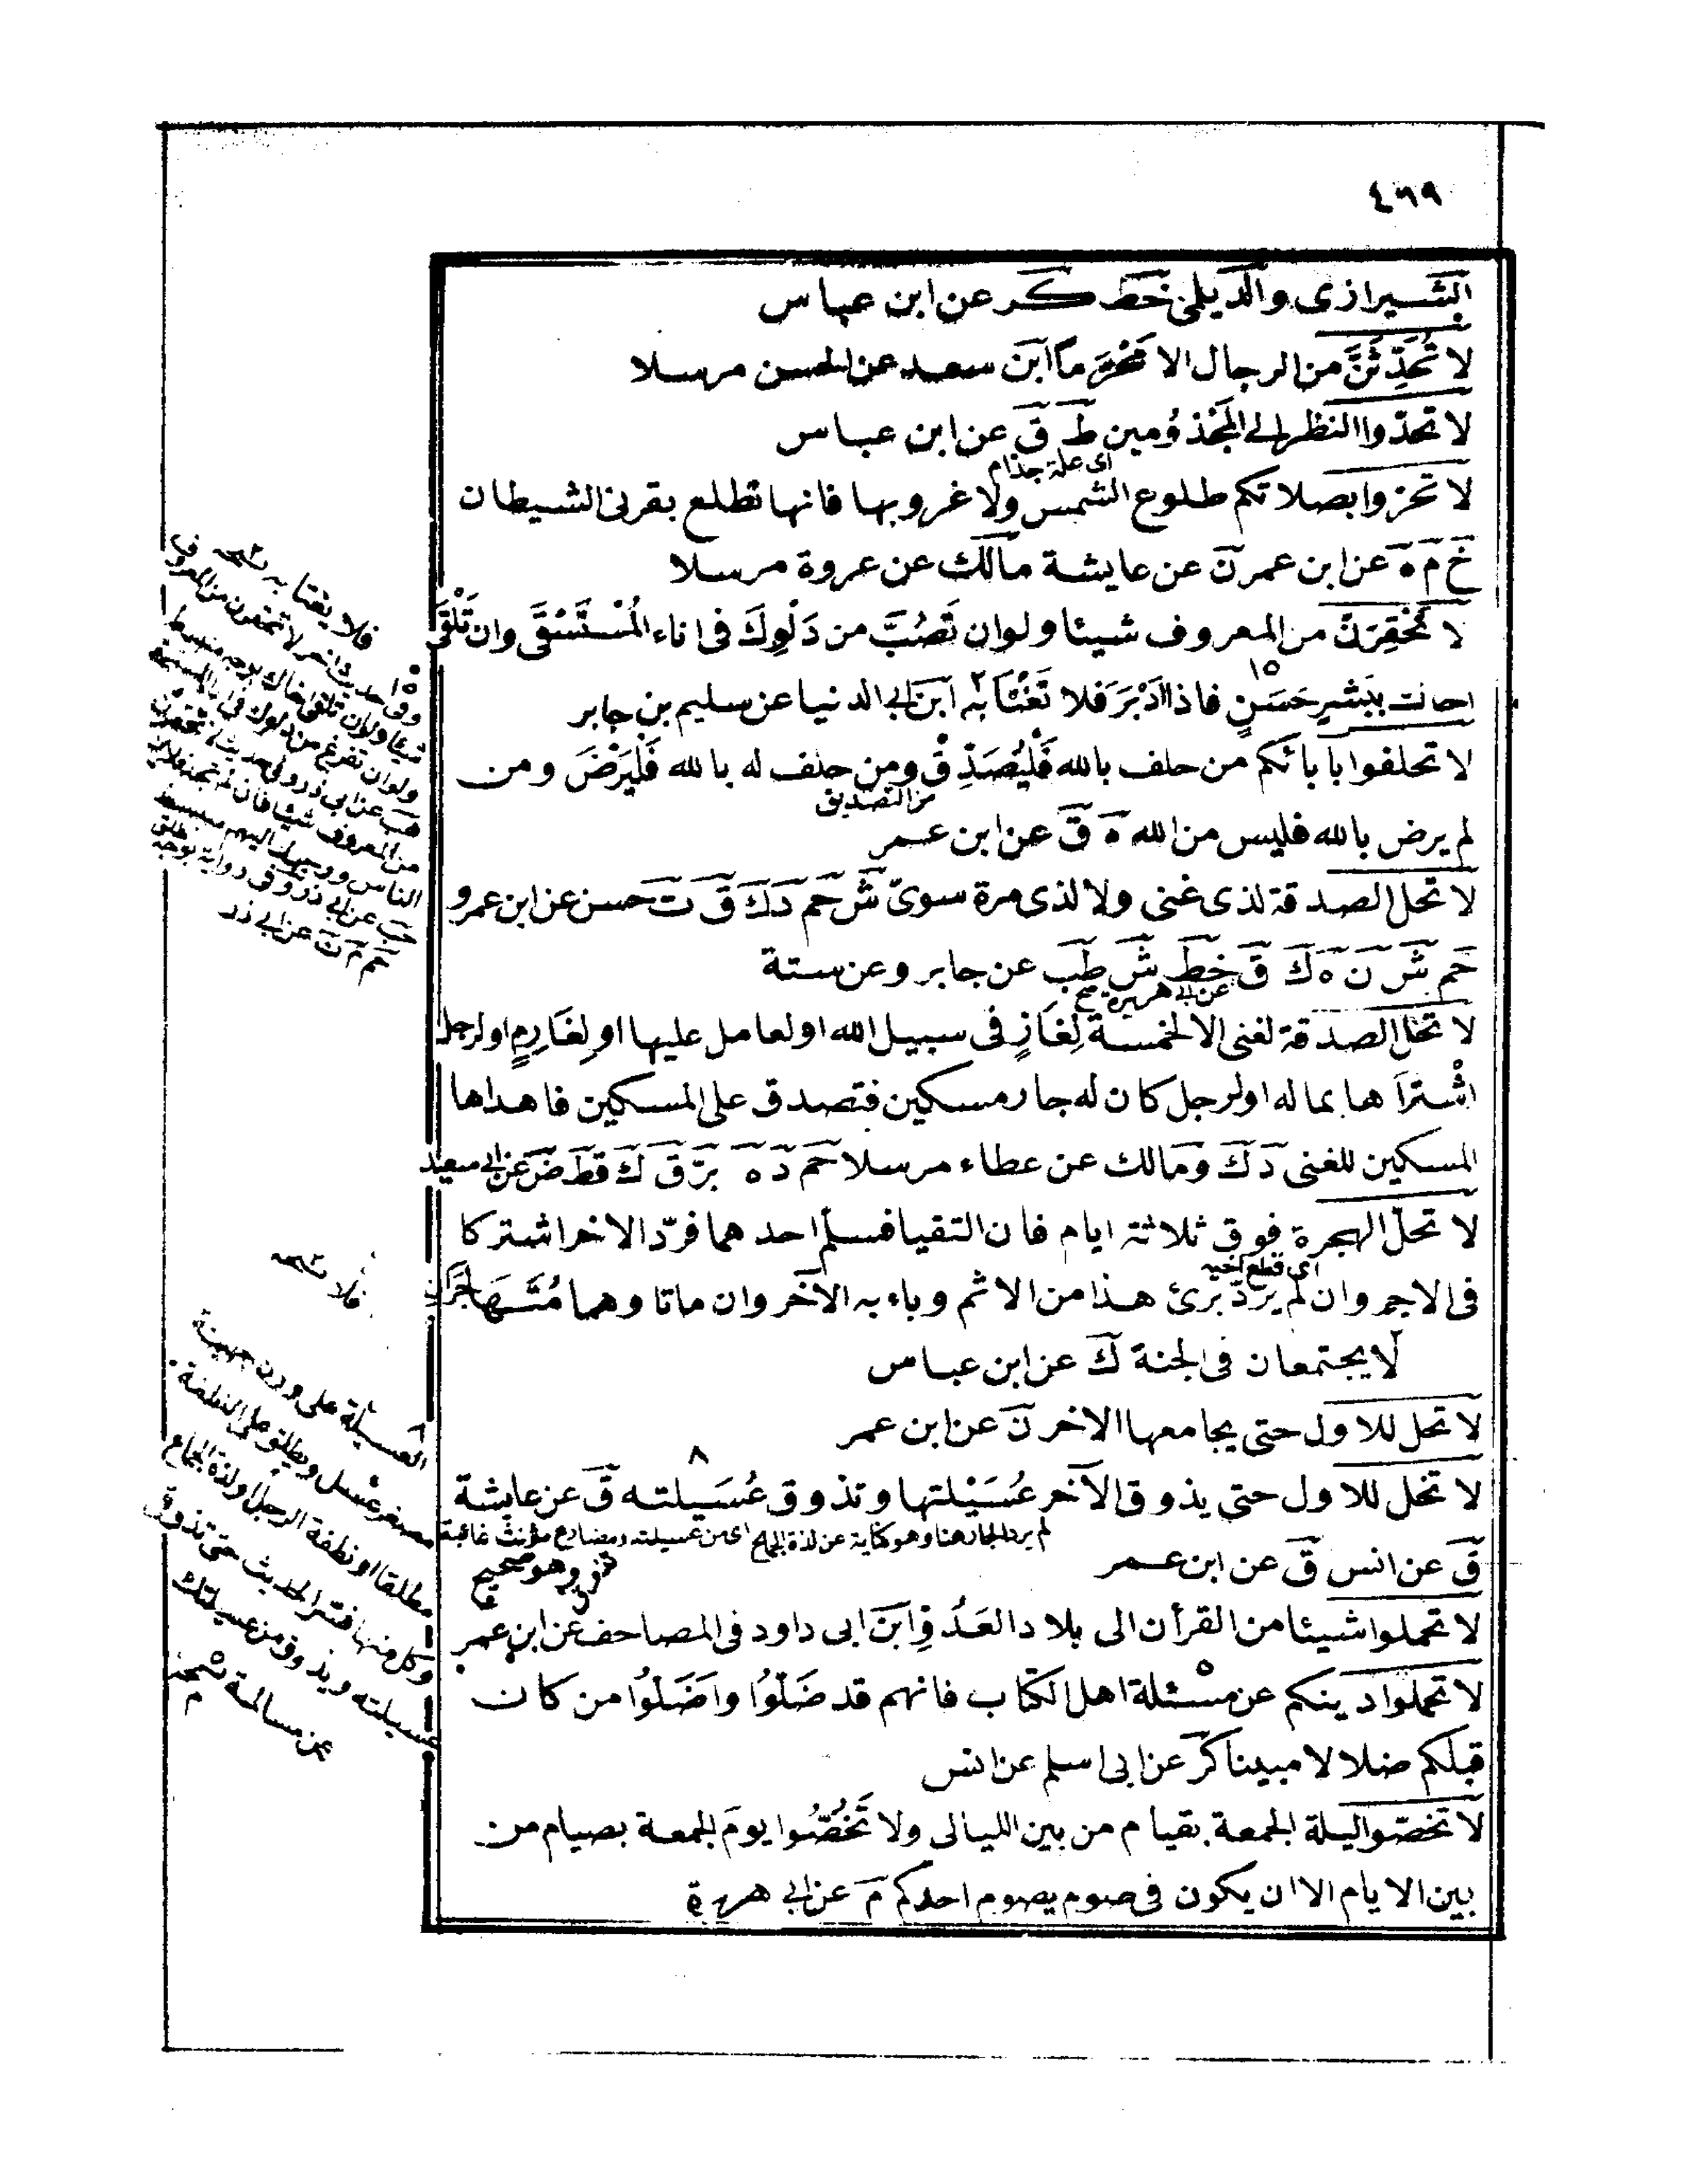 ٤٦٩
الشيرازى والديلمى خط كر عن ابن عباس
لا تُحَدِّثَنَّ من الرجال الا مَحْرَمًا ابن سعد عن الحسن مرسلا
لا تحدّوا النظر الى المَجْذُومين ط ق عن ابن عباس
اى علة جذام
لا تحروا بصلاتكم طلوع الشمس ولا غروبها فانها تطلع بقرنى الشيطان
خ م ه عن ابن عمر ن عن عايشة مالك عن عروة مرسلا
لا تَحْقِرَنَّ من المعروف شيئا ولو ان تَصُبَّ من دَلْوِكَ فى اناء المُسْتَسْقَى وان تَلْقَى
اخانت ببَشْرٍ حَسَنٍ فاذا اَدْبَرَ فلا تَغْتَابَه ابن ابى الدنيا عن سليم بن جابر
لا تحلفوا بابائكم من حلف بالله فَلْيُصَدِّقْ ومن حلف له بالله فَلْيَرْضَ ومن
من التصديق
لم يرض بالله فليس من الله ه ق عن ابن عمر
لا تحل الصدقة لذى غنى ولا لذى مرة سوىّ ش حم د ك ق ت حسن عن ابن عمرو
حم ش ن ه ك ق خط ش طب عن جابر وعن ستة
عن ابى هريرة صح
لا تحل الصدقة لغنى الا لخمسة لِغَازٍ فى سبيل الله او لعامل عليها او لِغَارِمٍ او لرجل
اشْتَرَاها بماله او لرجل كان له جار مسكين فتصدق على المسكين فاهداها
المسكين للغنى د ك ومالك عن عطاء مرسلا حم د ه بز ق ك قط ض عن ابى سعيد
لا تحلّ الهجرة فوق ثلاثة ايام فان التقيا فسلم احدهما فردّ الاخر اشتركا
اى قطع اخيه
فى الاجر وان لم يردّ برئ هذا من الاثم وباء به الآخر وان ماتا وهما مُتَهَاجِرَانِ
لا يجتمعان فى الجنة ك عن ابن عباس
لا تحل للاول حتى يجامعها الاخر ن عن ابن عمر
لا تحل للاول حتى يذوق الآخر عُسَيْلتها وتذوق عُسَيلته ق عن عايشة
لم يرد الجار هنا وهو كناية عن لذة الجماع اى من عسيلته ومضارع مؤنث غائبة
ق عن انس ق عن ابن عمر
وهو صحيح
لا تحملوا شيئا من القرأن الى بلاد العَدُوِّ ابن ابى داود فى المصاحف عن ابن عمر
لا تحملوا دينكم عن مسئلة اهل الكتاب فانهم قد ضَلُّوا واَضَلُّوا من كان
قبلكم ضلالا مبينا كر عن ابى اسلم عن انس
لا تخصّوا ليلة الجمعة بقيام من بين الليالى ولا تَخُصُّوا يومَ الجمعة بصيام من
بين الايام الا ان يكون فى صوم يصوم احدكم م عن ابى هريرة
فلا يغتابه نسخه
وفى حديث اخر لا تحقرن من المعروف
شيئا ولو ان تلقى اخاك بوجه منبسط
ولو ان تفرغ من دلوك فى اناء المستقى
هب عن ابى ذر وفى حديث لا تحقرن
من المعروف شيئا فان لم تجد فلاين
الناس ووجهك اليهم منبسط
حب عن ابى ذر وفى رواية بوجه طلق
حم م ت عن ابى ذر
فلا نسخه
العسيلة على وزن جهينة
مصغر عسل ويطلق على النطفة
مطلقا او نطفة الرجل او لذة الجماع
وكل منها فسّر الحديث حتى تذوق
عسيلته ويذوق من عسيلتك
عن مسالمة نسخه